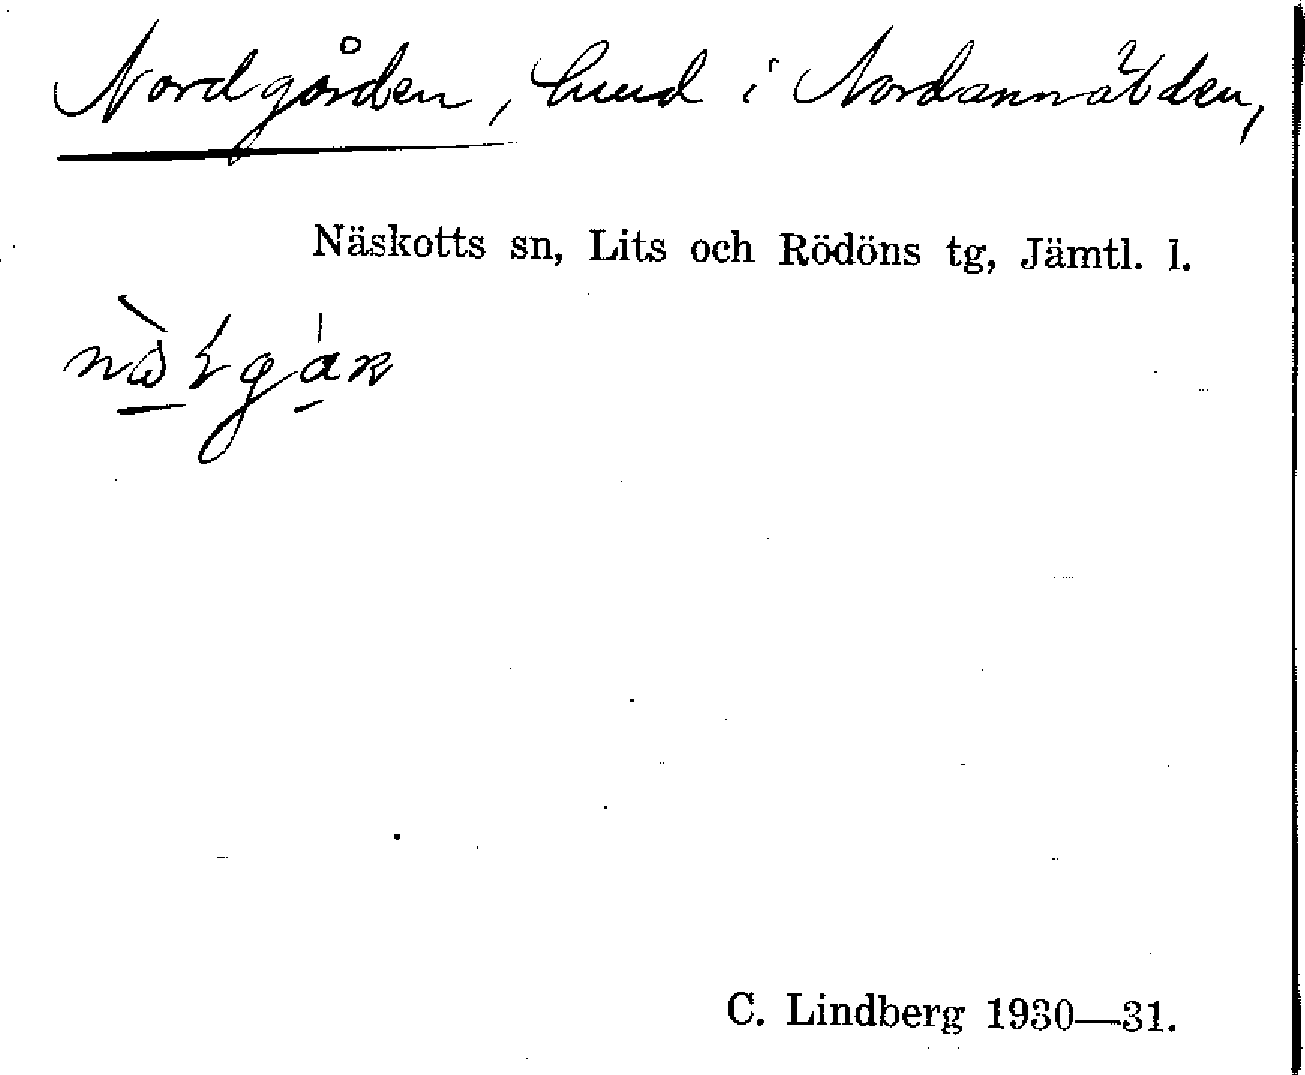 Nordgården, hmd i Nordannälden,
Näskotts sn, Lits och Rödöns tg, Jämtl. l.
C. Lindberg 1930—31.